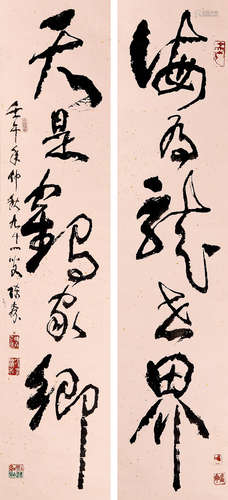 海为龙世界
天是鹤家乡
壬午年仲秋九十一叟